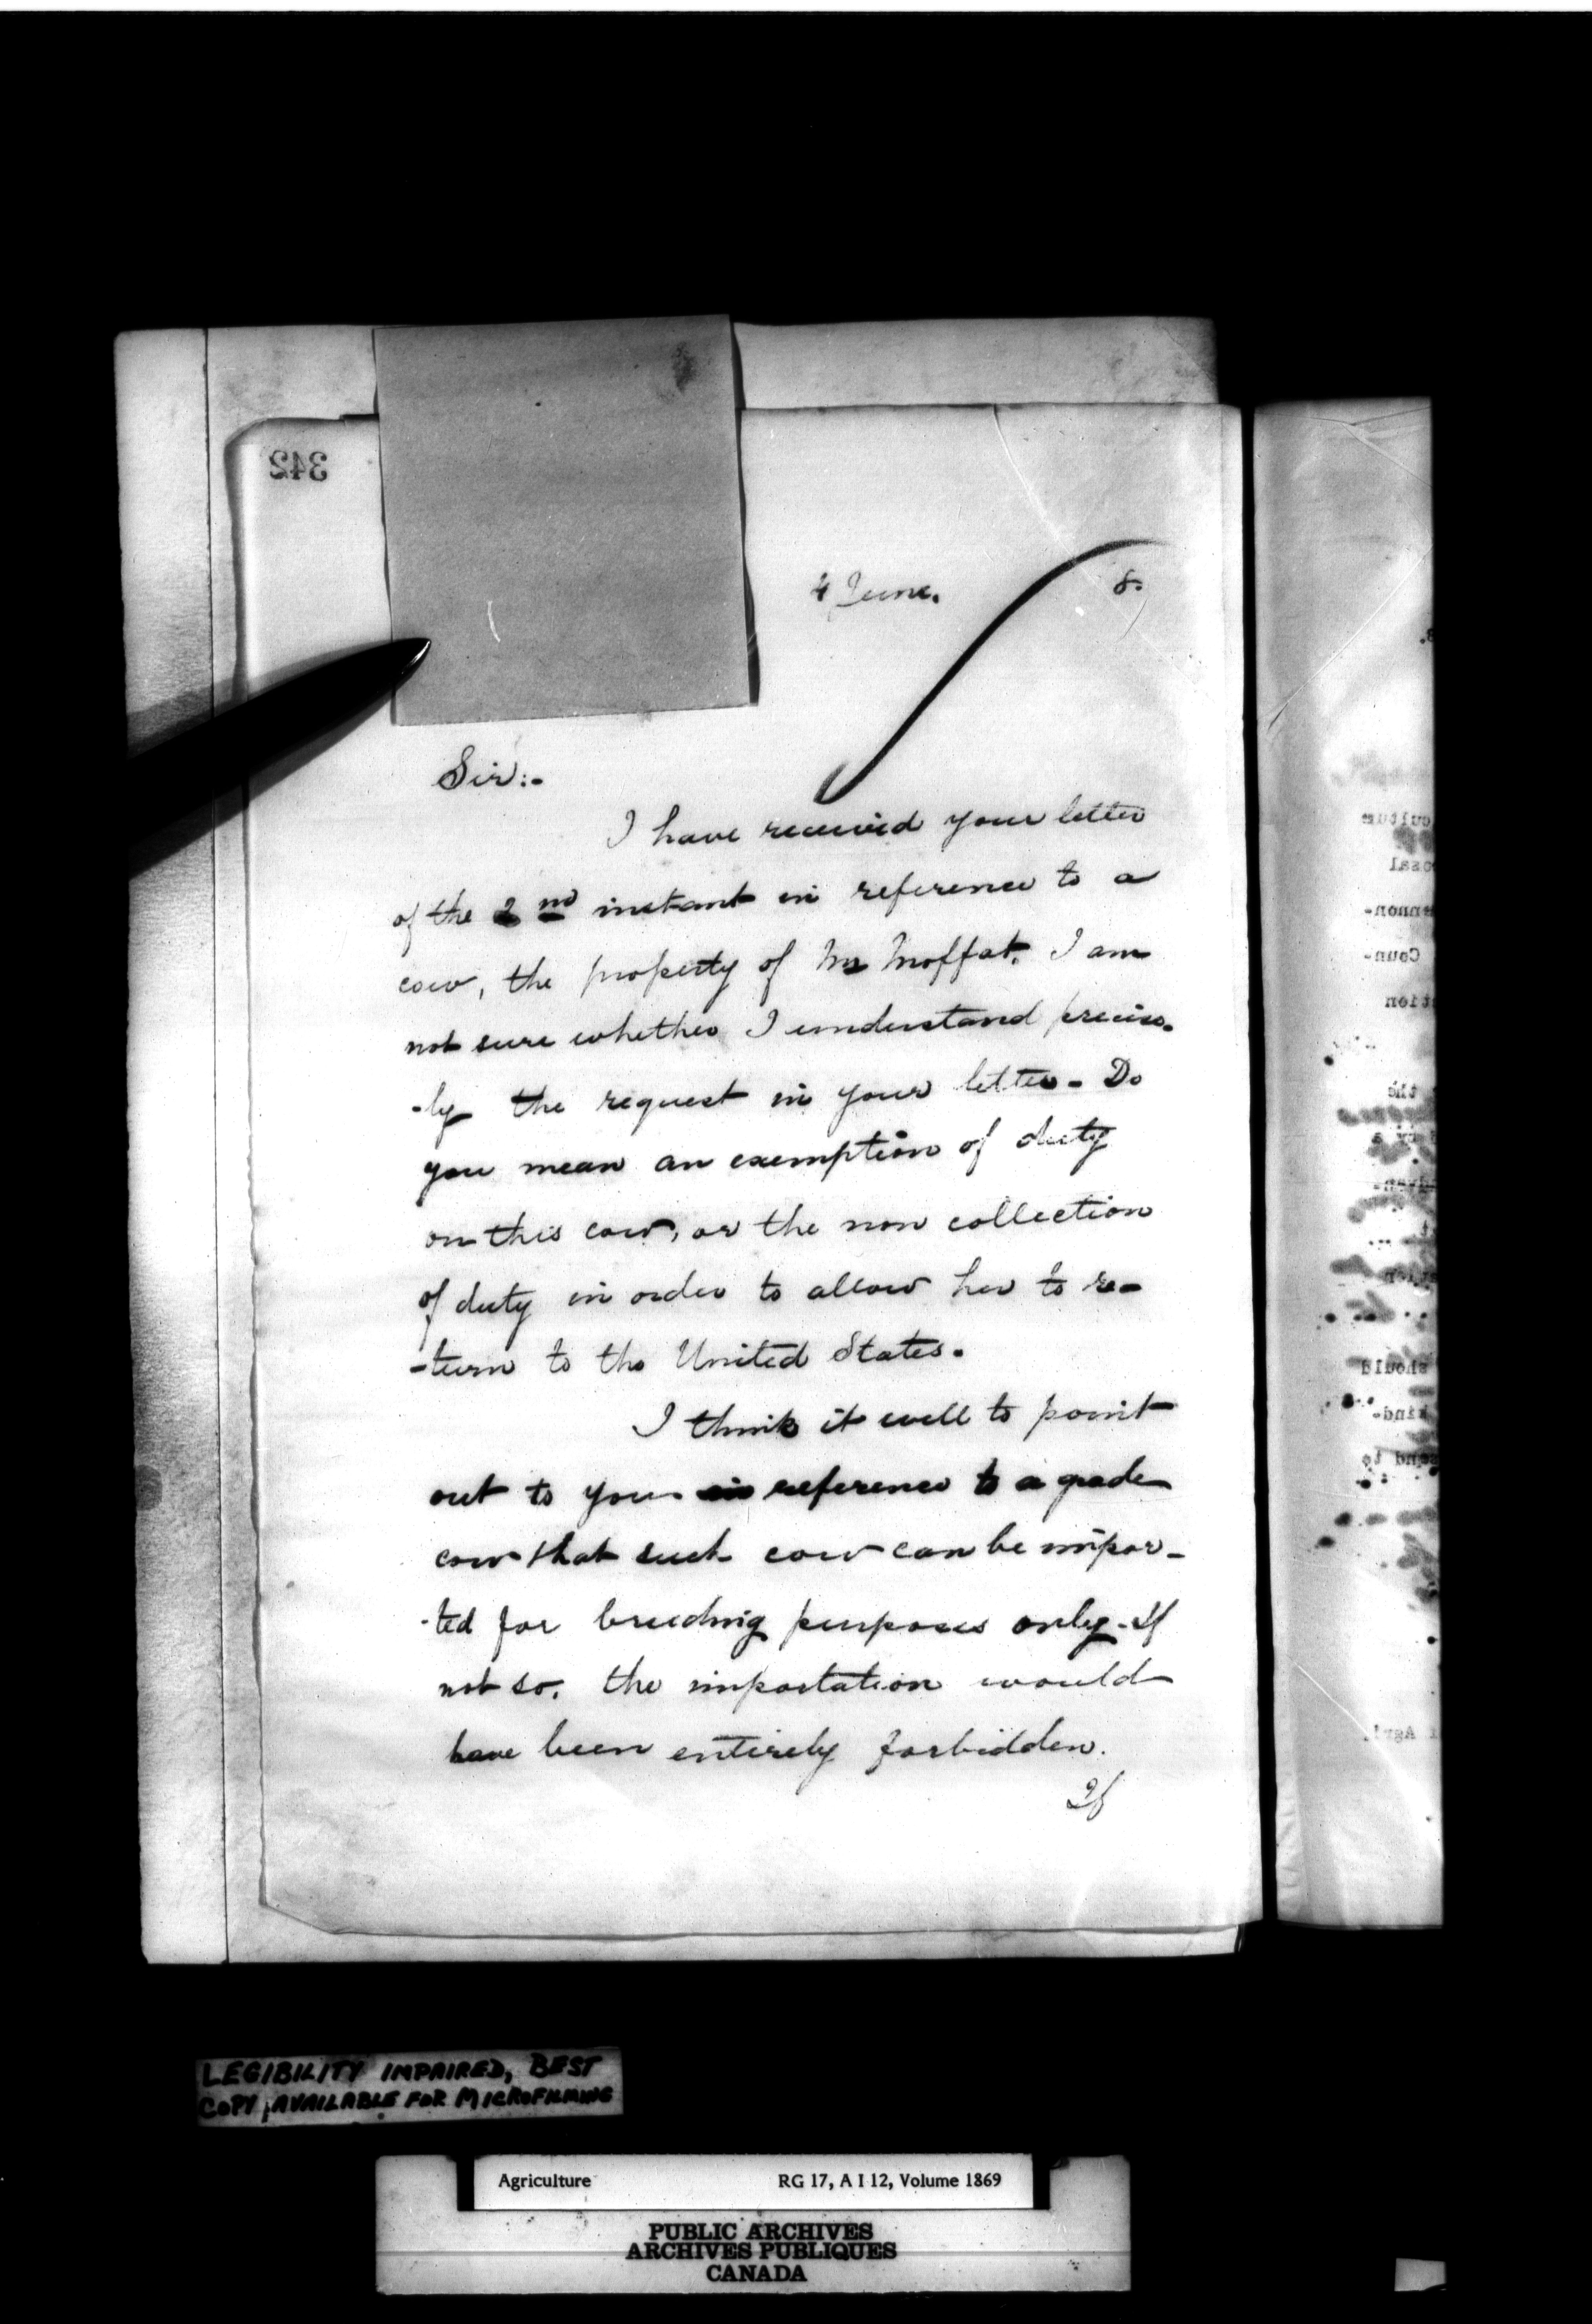 342
4 June. 8.
Sir:-
I have received your letter
of the 2nd instant in reference to a
cow, the property of Mr Moffat. I am
not sure whether I understand precise-
-ly the request in your letter - Do
you mean an exemption of duty
on this cow, or the non collection
of duty in order to allow her to re-
-turn to the United States.
I think it well to point
out to you in reference to a grade
cow that such cow can be impor-
-ted for breeding purposes only. If
not so, the importation would
have been entirely forbidden.
If
culture
osal
ennon-
Coun-
tion
the
should
kind-
send to
Agr!
LEGIBILITY IMPAIRED, BEST
COPY AVAILABLE FOR MICROFILMING
Agriculture RG 17, A I 12, Volume 1869
PUBLIC ARCHIVES
ARCHIVES PUBLIQUES
CANADA